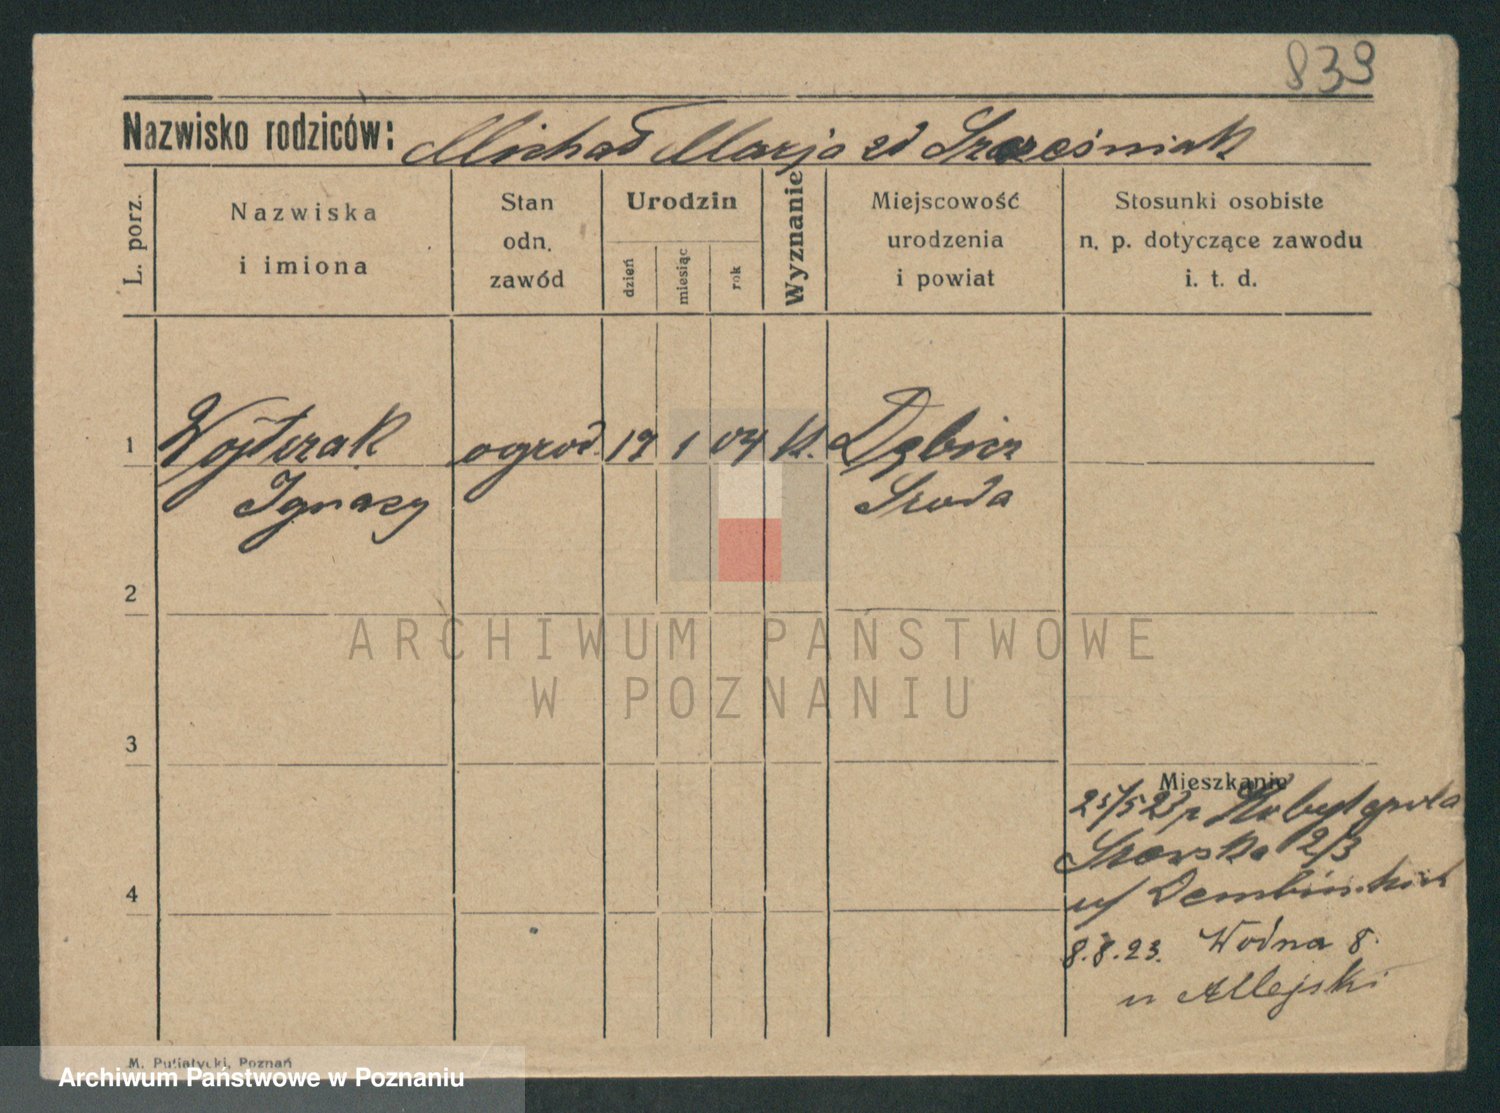 839
Nazwisko rodziców: Michał Marja zd Szcześniak
L. porz.
Nazwiska
i imiona
Stan
odn.
zawód
Urodzin
dzień
miesiąc
rok
Wyznanie
Miejscowość
urodzenia
i powiat
Stosunki osobiste
n. p. dotyczące zawodu
i. t. d.
1 Wojtczak ogrod. 17 1 04 kt. Dębicz
Ignacy Środa
2
ARCHIWUM PAŃSTWOWE
W POZNANIU
3
Mieszkanie
25/5 23 Kobylepole
2/3
4
8.8.23. Wodna 8.
u Allejski
M. Putiatycki, Poznań
Archiwum Państwowe w Poznaniu